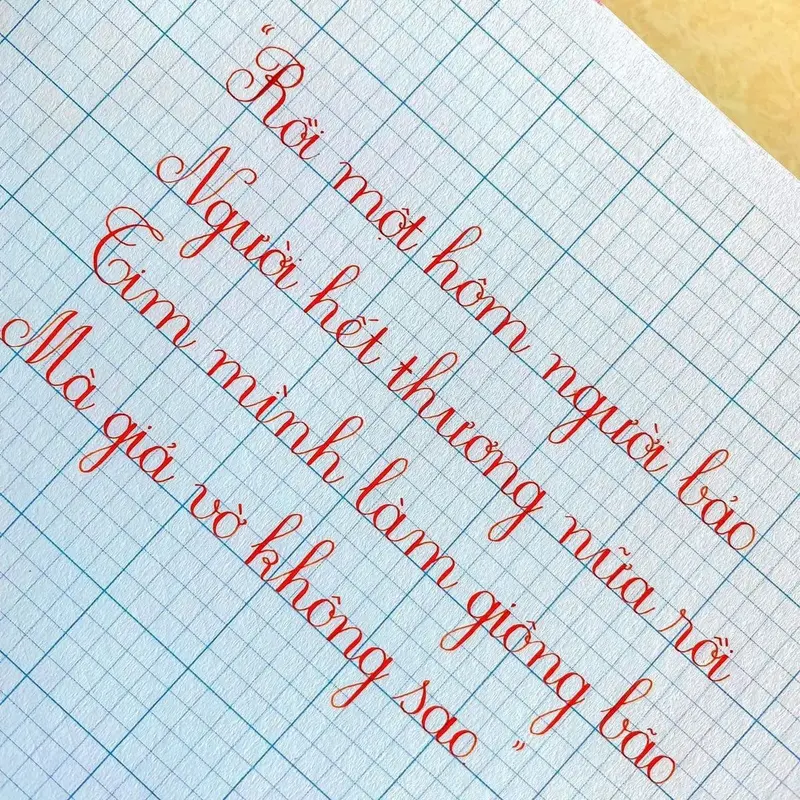 "Rồi một hôm người bảo
Người hết thương nữa rồi
Tim mình làm giông bão
Mà giả vờ không sao"